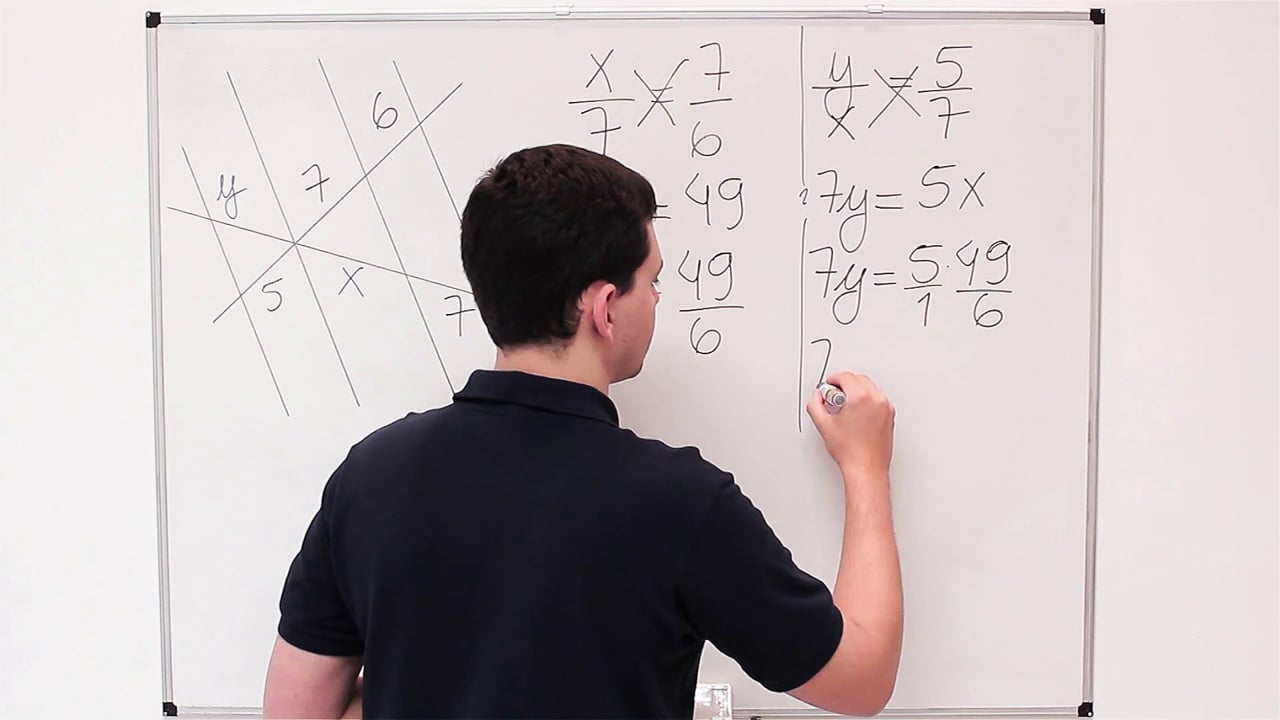 6
y 7
5 x 7
x/7 = 7/6
= 49
49/6
y/x = 5/7
7y = 5x
7y = 5/1 · 49/6
7